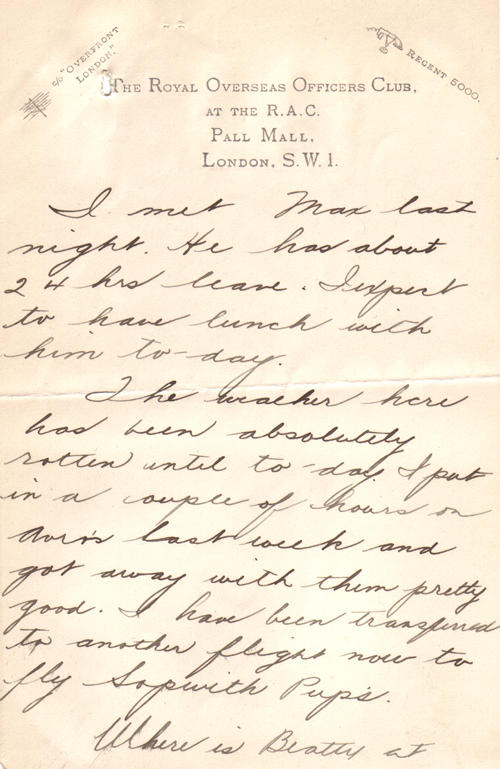 c/o "OVERFRONT
LONDON."
REGENT 5000.
THE ROYAL OVERSEAS OFFICERS CLUB,
AT THE R.A.C.
PALL MALL,
LONDON, S.W.1.
I met Max last
night. He has about
24 hrs leave. I expect
to have lunch with
him to-day.
The weather here
has been absolutely
rotten until to-day. I put
in a couple of hours on
Avro's last week and
got away with them pretty
good. I have been transferred
to another flight now to
fly Sopwith Pups.
Where is Beatty at